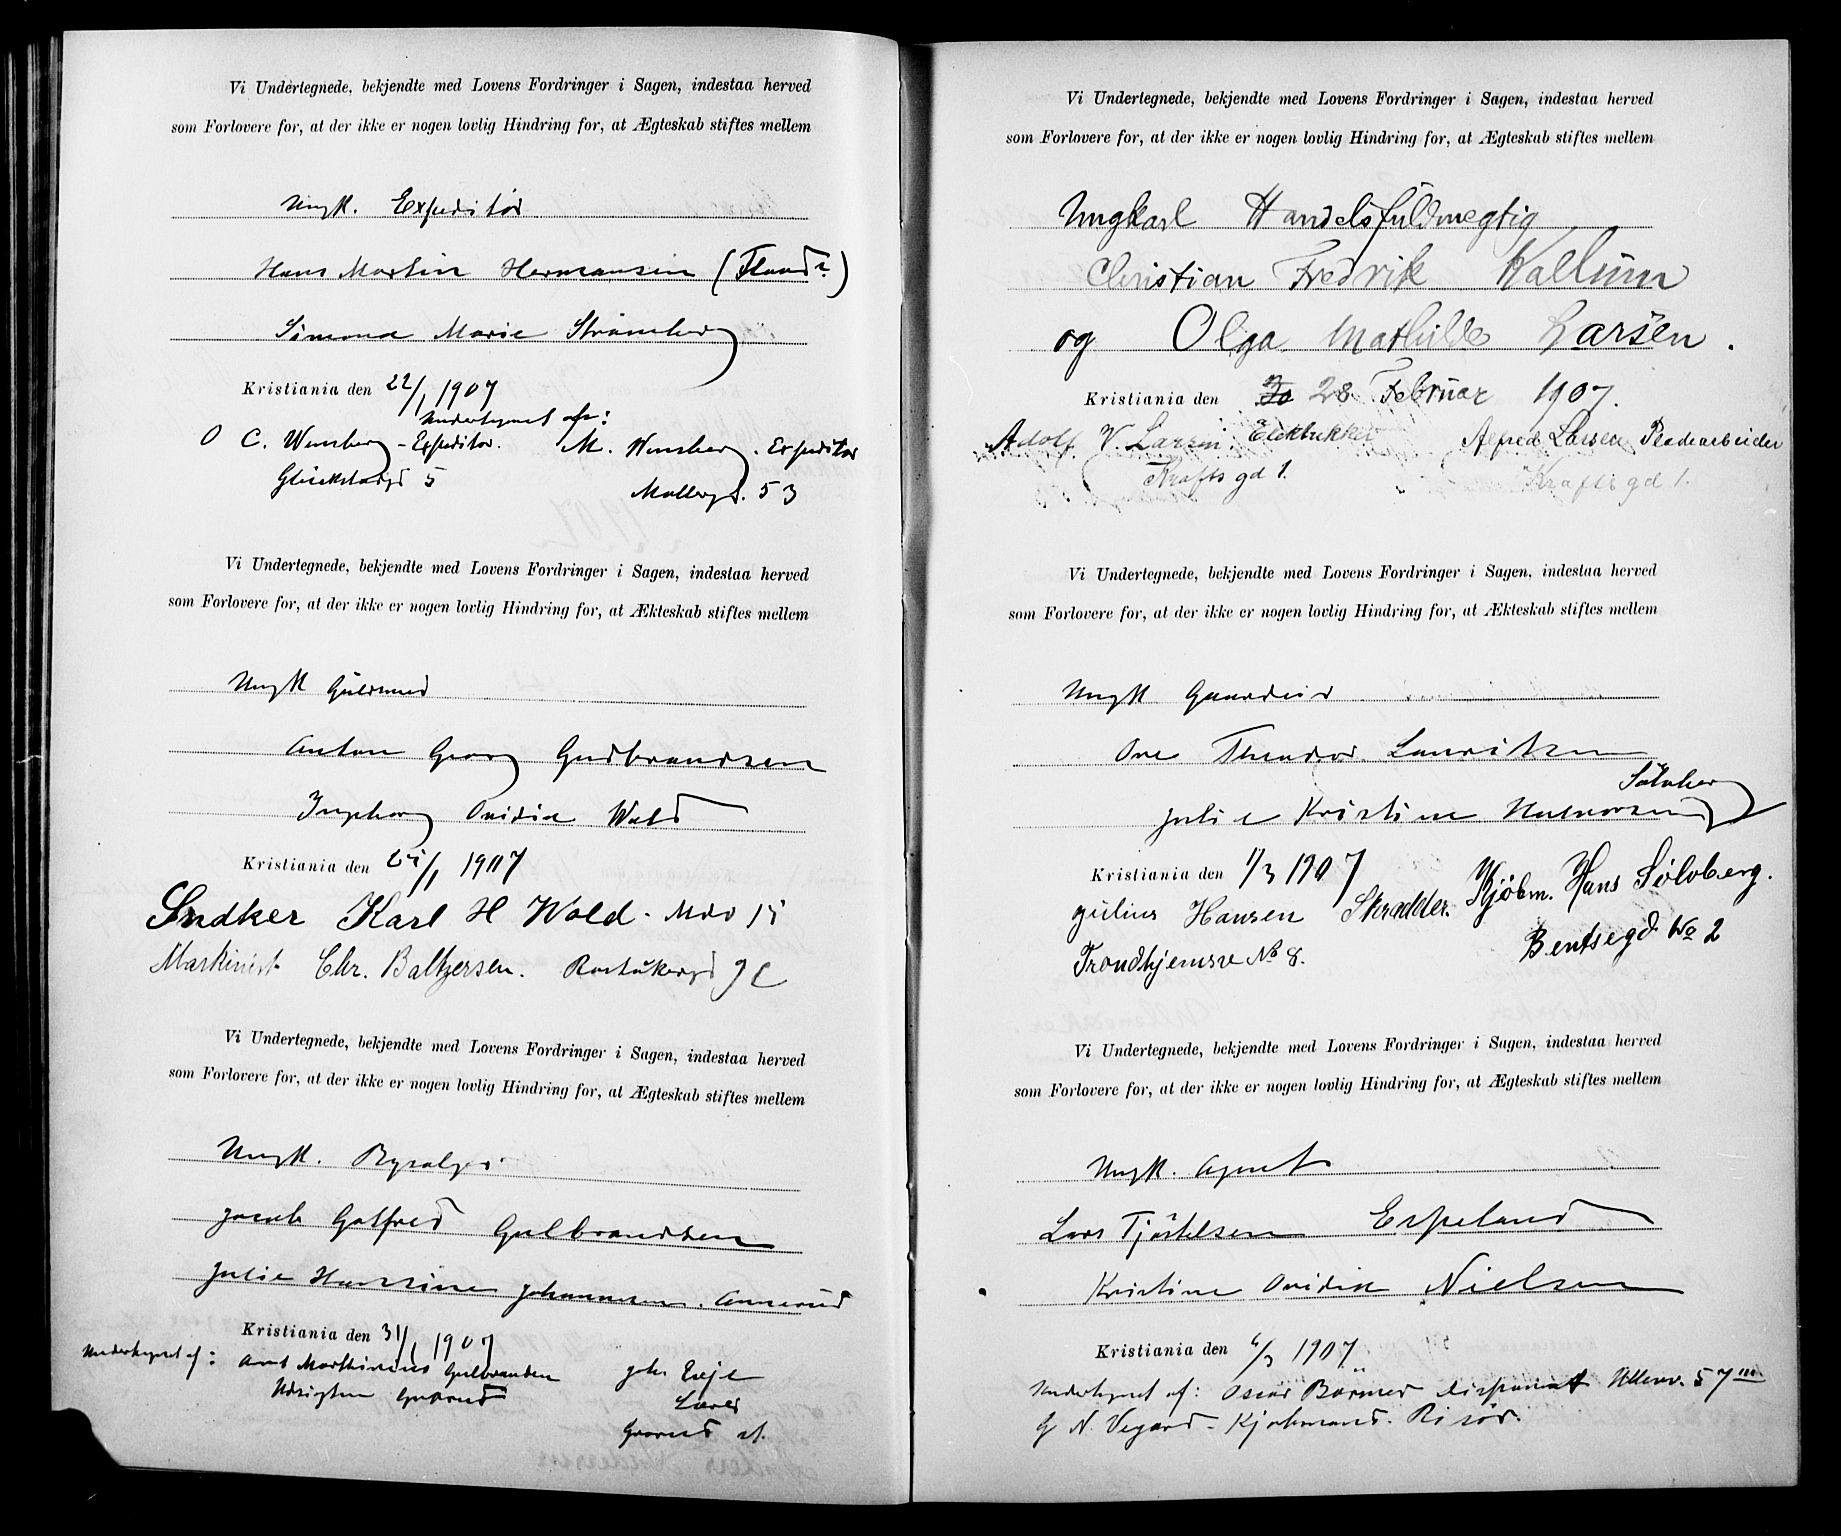 Vi Undertegnede, bekjendte med Lovens Fordringer i Sagen, indestaa herved
som Forlovere for, at der ikke er nogen lovlig Hindring for, at Ægteskab stiftes mellem
Ungk. Expeditør
Hans Martin Hermansen
Simona Marie Strømberg
Kristiania den 22/1 1907
Undertegnet af:
C. Wensberg - Expeditør. M. Wensberg. Expeditør
5 Møllergd. 53
Vi Undertegnede, bekjendte med Lovens Fordringer i Sagen, indestaa herved
som Forlovere for, at der ikke er nogen lovlig Hindring for, at Ækteskab stiftes mellem
Ungk Guldsmed
Anton Georg Gudbrandsen
Ingeborg Ovidia Wold
Kristiania den 1907
Sndker Karl H Wold.
Maskinist Chr. Baltzersen.
Vi Undertegnede, bekjendte med Lovens Fordringer i Sagen, indestaa herved
som Forlovere for, at der ikke er nogen lovlig Hindring for, at Ægteskab stiftes mellem
Ungk.
Jacob Gotfred Gulbrandsen
Julie Hansine Johannesen. Ammerud
Kristiania den 31/1 1907
Undertegnet af: Gulbrandsen Joh. Evje
Grorud Lærer
Grorud st.
Vi Undertegnede, bekjendte med Lovens Fordringer i Sagen, indestaa herved
som Forlovere for, at der ikke er nogen lovlig Hindring for, at Ægteskab stiftes mellem
Ungkarl Handelsfuldmegtig
Christian Fredrik Kallum
og Olga Mathilde Larsen.
Kristiania den 28 Februar 1907.
Adolf V. Larsen Alfred Larsen Pladearbeider
Krafts gd 1. Krafts gd 1.
Vi Undertegnede, bekjendte med Lovens Fordringer i Sagen, indestaa herved
som Forlovere for, at der ikke er nogen lovlig Hindring for, at Ækteskab stiftes mellem
Ungk Gaardeier
Ove Theodor Lauritzen
Sølvberg
Julie Kristine Halvorsen
Kristiania den 1/3 1907
Julius Hansen Skrædder. Kjøbm. Hans Sölvberg.
Trondhjemsve No 8. Bentsegd. No 2
Vi Undertegnede, bekjendte med Lovens Fordringer i Sagen, indestaa herved
som Forlovere for, at der ikke er nogen lovlig Hindring for, at Ægteskab stiftes mellem
Ungk. Agent
Lars Tjøstelsen Espeland
Kristine Ovidia Nielsen
Kristiania den 6/3 1907
Undertegnet af: Oscar Børmer Disponent Ullevv. 57 III
G N. Vegard - Kjøbmand. Risør.